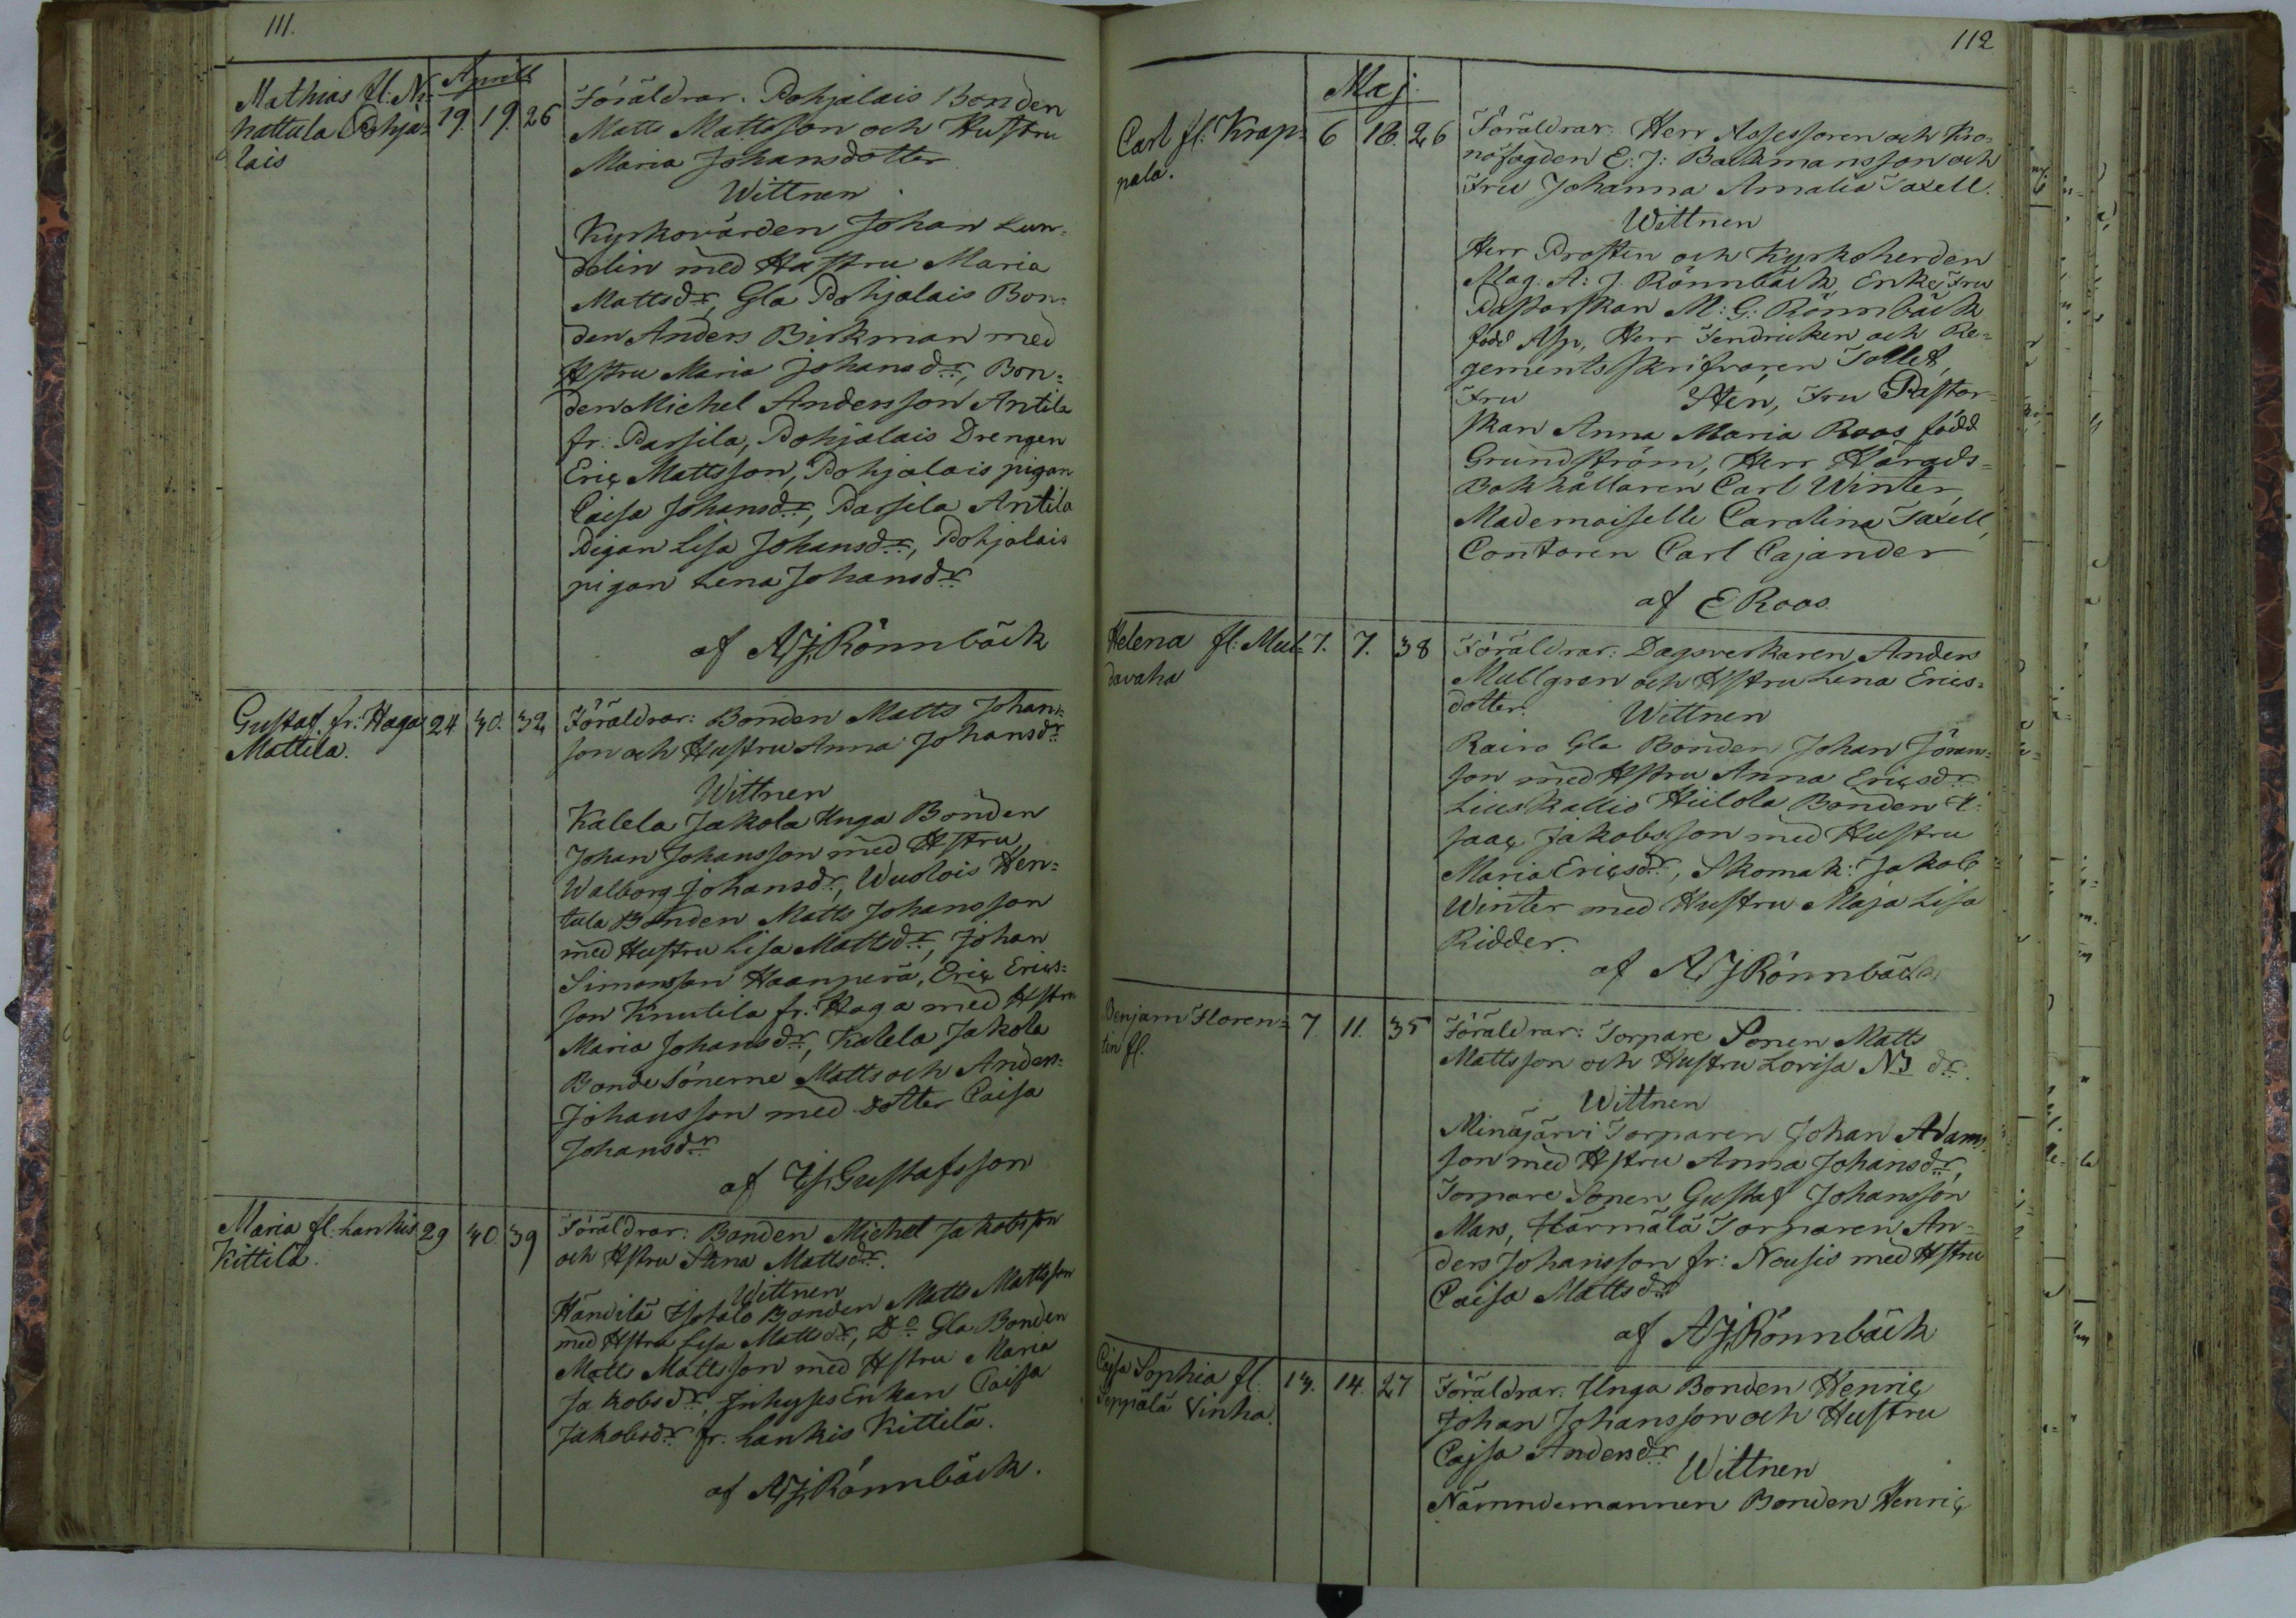 111.
Aprill
Mathias fl. Ni-
hattula Pohja-
lais
19. 19. 26
Föräldrar. Pohjalais Bonden
Matts Mattsson och Hustru
Maria Johansdotter
Wittnen
Kyrkovärden Johan Lun-
delin med Hustru Maria
Mattsdr, Gla Pohjalais Bon-
den Anders Birkman med
Hstru Maria Johansdr, Bon-
den Michel Andersson Antila
fr: Parsila, Pohjalais Drengen
Eric Mattsson, Pohjalais pigan
Caisa Johansdr, Parsila Antila
Pigan Lisa Johansdr, Pohjalais
pigan Lena Johansdr
af AJRönnbäck
Gustaf. fr: Haga
Mattila.
24 30. 32
Föräldrar: Bonden Matts Johans-
son och Hustru Anna Johansdr
Wittnen
Kalela Jakola Unga Bonden
Johan Johansson med Hstru
Walborg Johansdr, Wuolois Hen-
tula Bonden Matts Johansson
med Hustru Lisa Mattsdr, Johan
Simonsson Haanperä, Eric Erics-
son Knutila fr: Haga med Hstru
Maria Johansdr, Kalela Jakola
Bonde Sönerne Matts och Anders
Johansson med dotter Caisa
Johansdr
af Gustafsson
Maria fl. Lankis
Kittilä.
29 30. 39
Föräldrar: Bonden Michel Jakobsson
och Hstru Stina Mattsdr.
Wittnen
Händilä Isotalo Bonden Matts Mattsson
med Hstru Lisa Mattsdr, Do Gla Bonden
Matts Mattsson med Hstru Maria
Jakobsdr, Inhyses Enkan Caisa
Jakobsdr fr. Lankis Kittilä.
af AJRönnbäck.
112
Maj.
Carl fl: Krap-
pala.
6 18. 26
Föräldrar. Herr Assessoren och Kro-
nofogden E: J: Backmansson och
Fru Johanna Amalia Taxell.
Wittnen
Herr Prosten och Kyrkoherden
Mag: A: J. Rönnbäck, Enke Fru
Pastorskan M: G: Rönnbäck
född Asp, Herr Fendricken och Re-
gementsskrifvaren Tollet,
Fru Sten, Fru Pastor-
skan Anna Maria Roos född
Grundström, Herr Härads-
Bokhållaren Carl Winter,
Mademoiselle Carolina Taxell,
Contoren Carl Cajander
af E Roos.
Helena fl: Mul-
davaha
7. 7. 38
Föräldrar: Dagsverkaren Anders
Mullgren och Hstru Lena Erics-
dotter.
Wittnen
Raivo Gla Bonden Johan Jörans-
son med Hstru Anna Ericsdr
Liuskallio Hiilola Bonden I-
saac Jakobsson med Hustru
Maria Ericsdr, Skomak: Jakob
Winter med Hustru Maja Lisa
Ridder.
af AJRönnbäck
Benjam Floren-
tin fl.
7. 11. 35
Föräldrar: Torpare Sonen Matts
Mattsson och Hustru Lovisa N3 dr.
Wittnen
Minäjärvi Torparen Johan Adams
son med Hstru Anna Johansdr,
Torpare Sonen Gustaf Johansson
Mars, Härmälä Torparen An-
ders Johansson fr: Nousis med Hstru
Caisa Mattsdr
af AJRönnbäck
Cajsa Sophia fl.
Seppälä Vinha.
13. 14. 27
Föräldrar. Unga Bonden Henric
Johan Johansson och Hustru
Cajsa Andersdr
Wittnen
Nämndemannen Bonden Henric